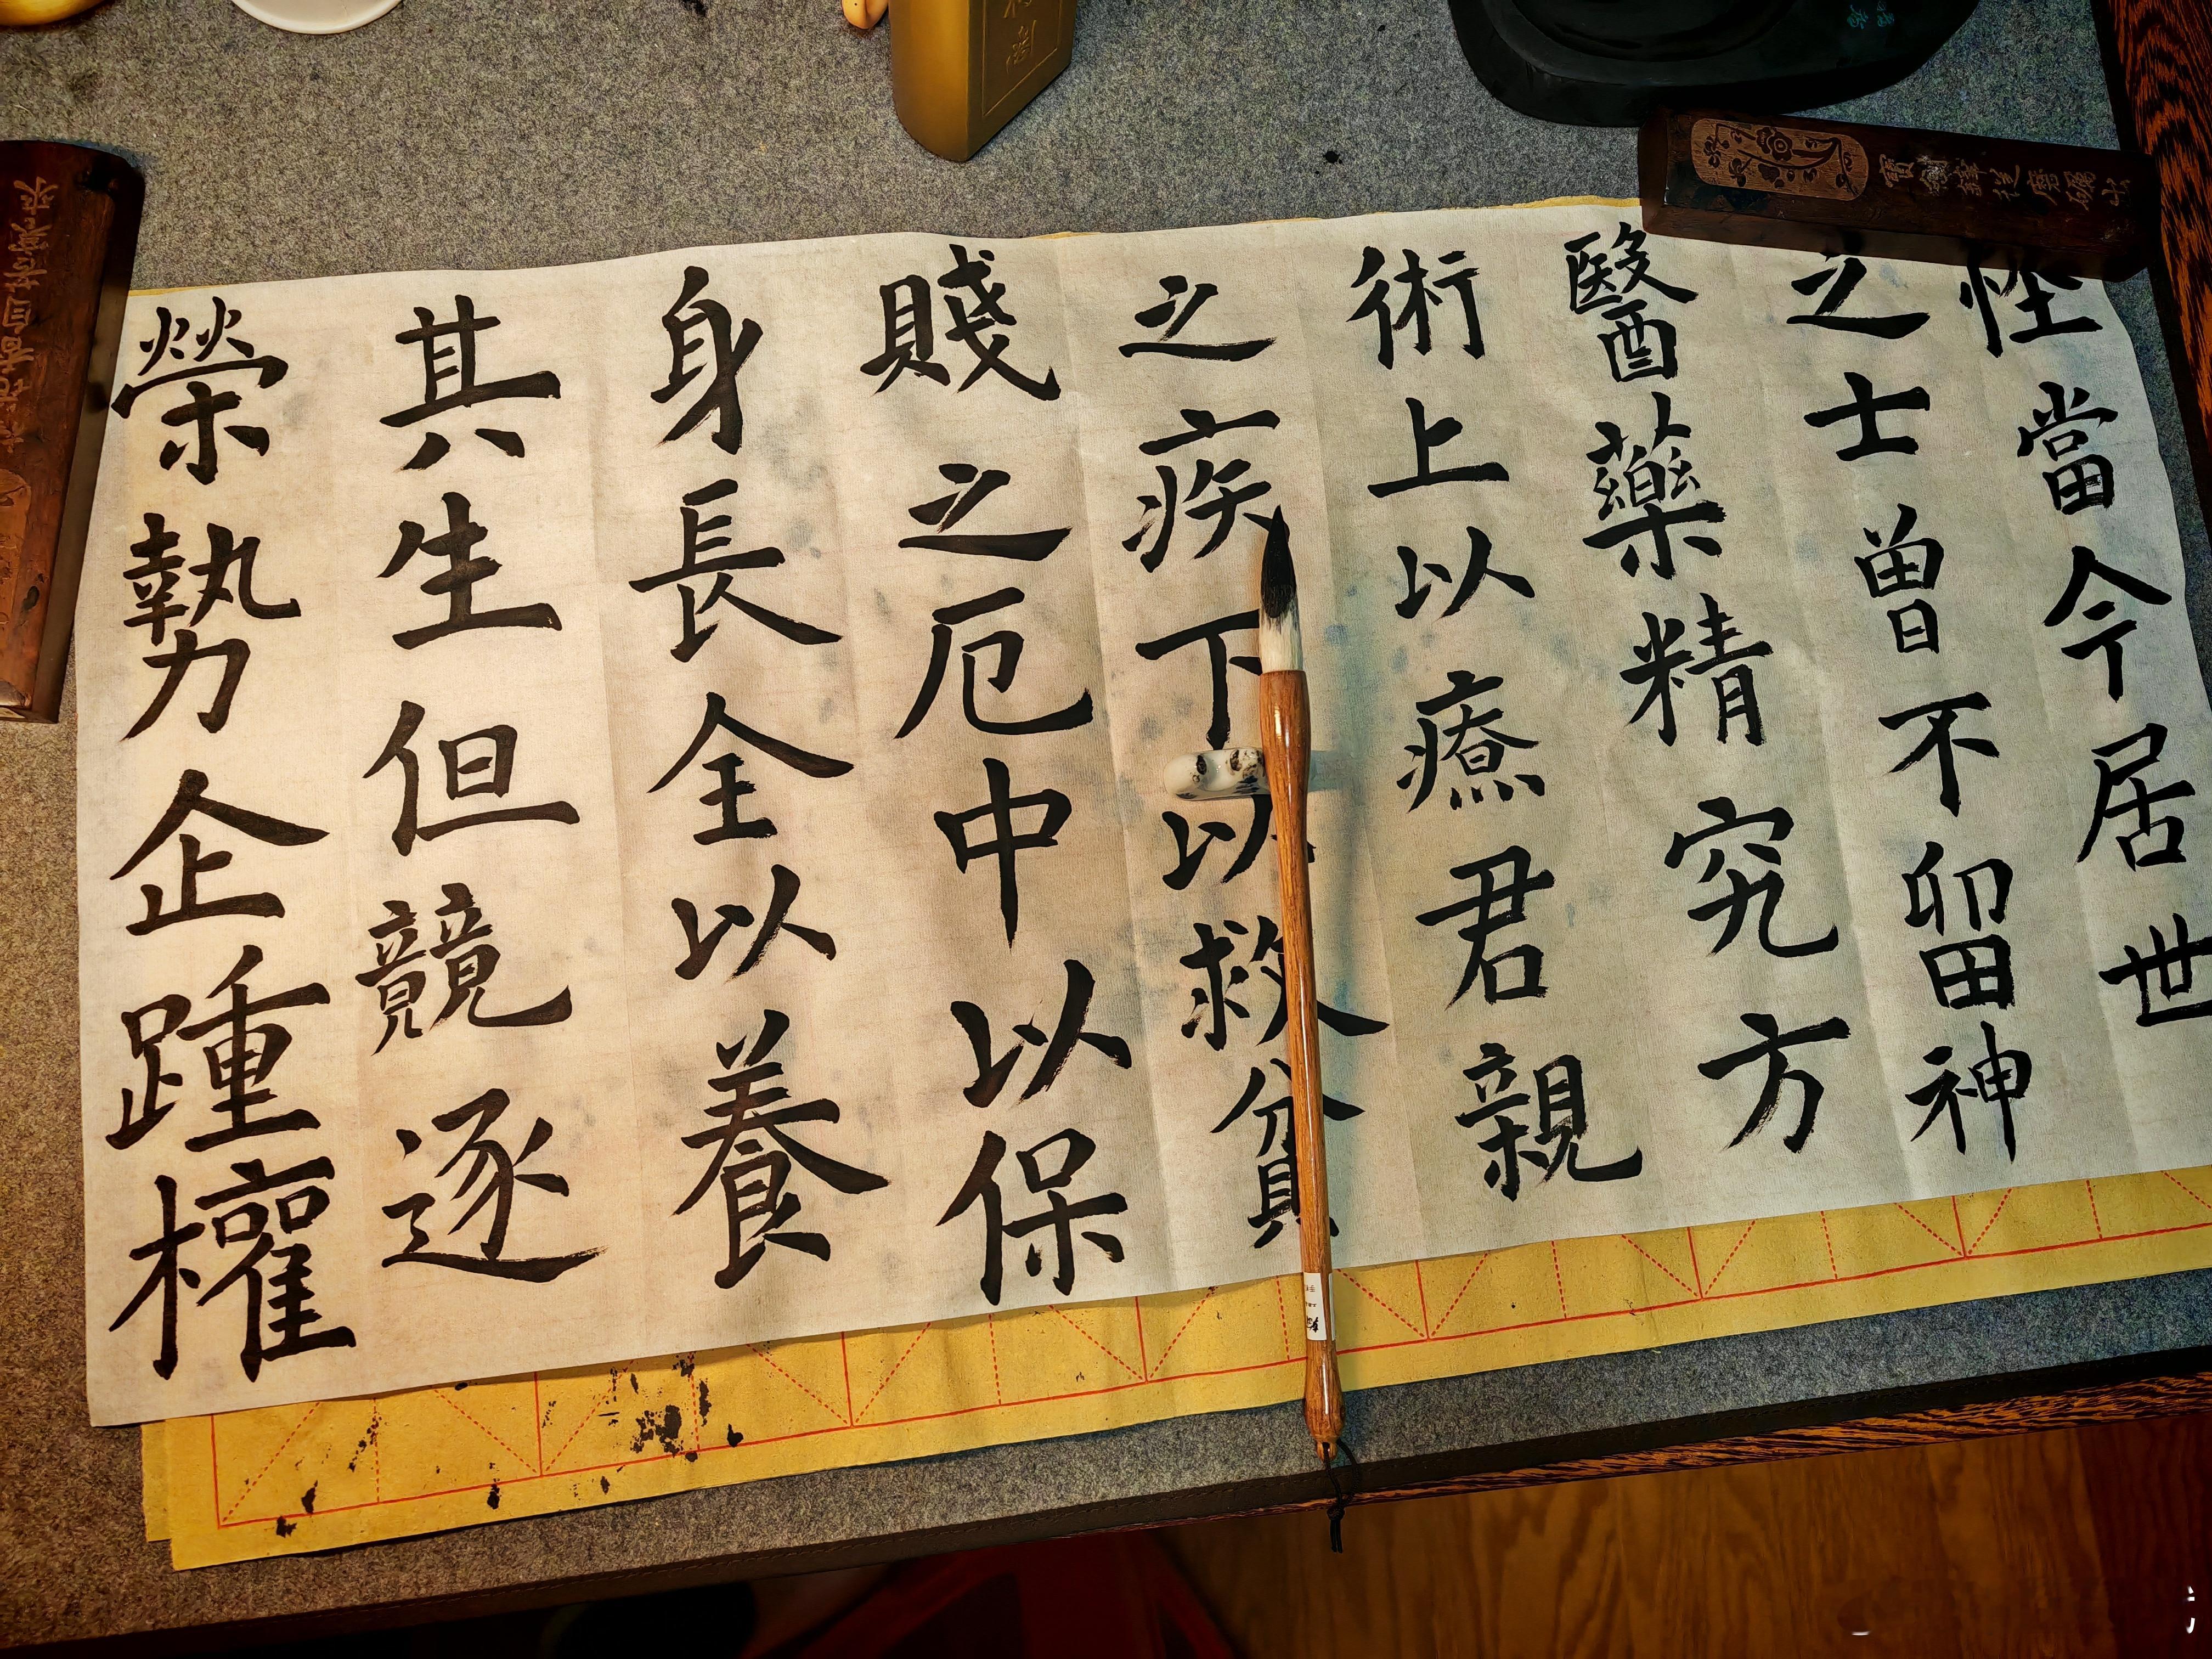 怪當今居世
之士曾不留神
醫藥精究方
術上以療君親
之疾下以救貧
賤之厄中以保
身長全以養
其生但競逐
榮勢企踵權